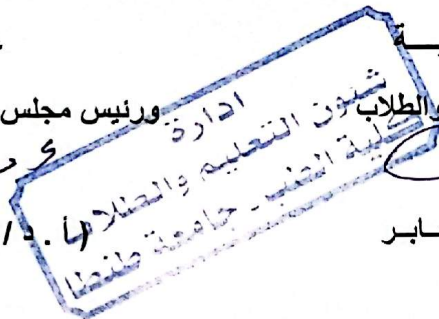 ـة
والطلاب ورئيس مجلس
ـابر (أ . د /
ادارة
شئون التعليم والطلاب
كلية الطب - جامعة طنطا